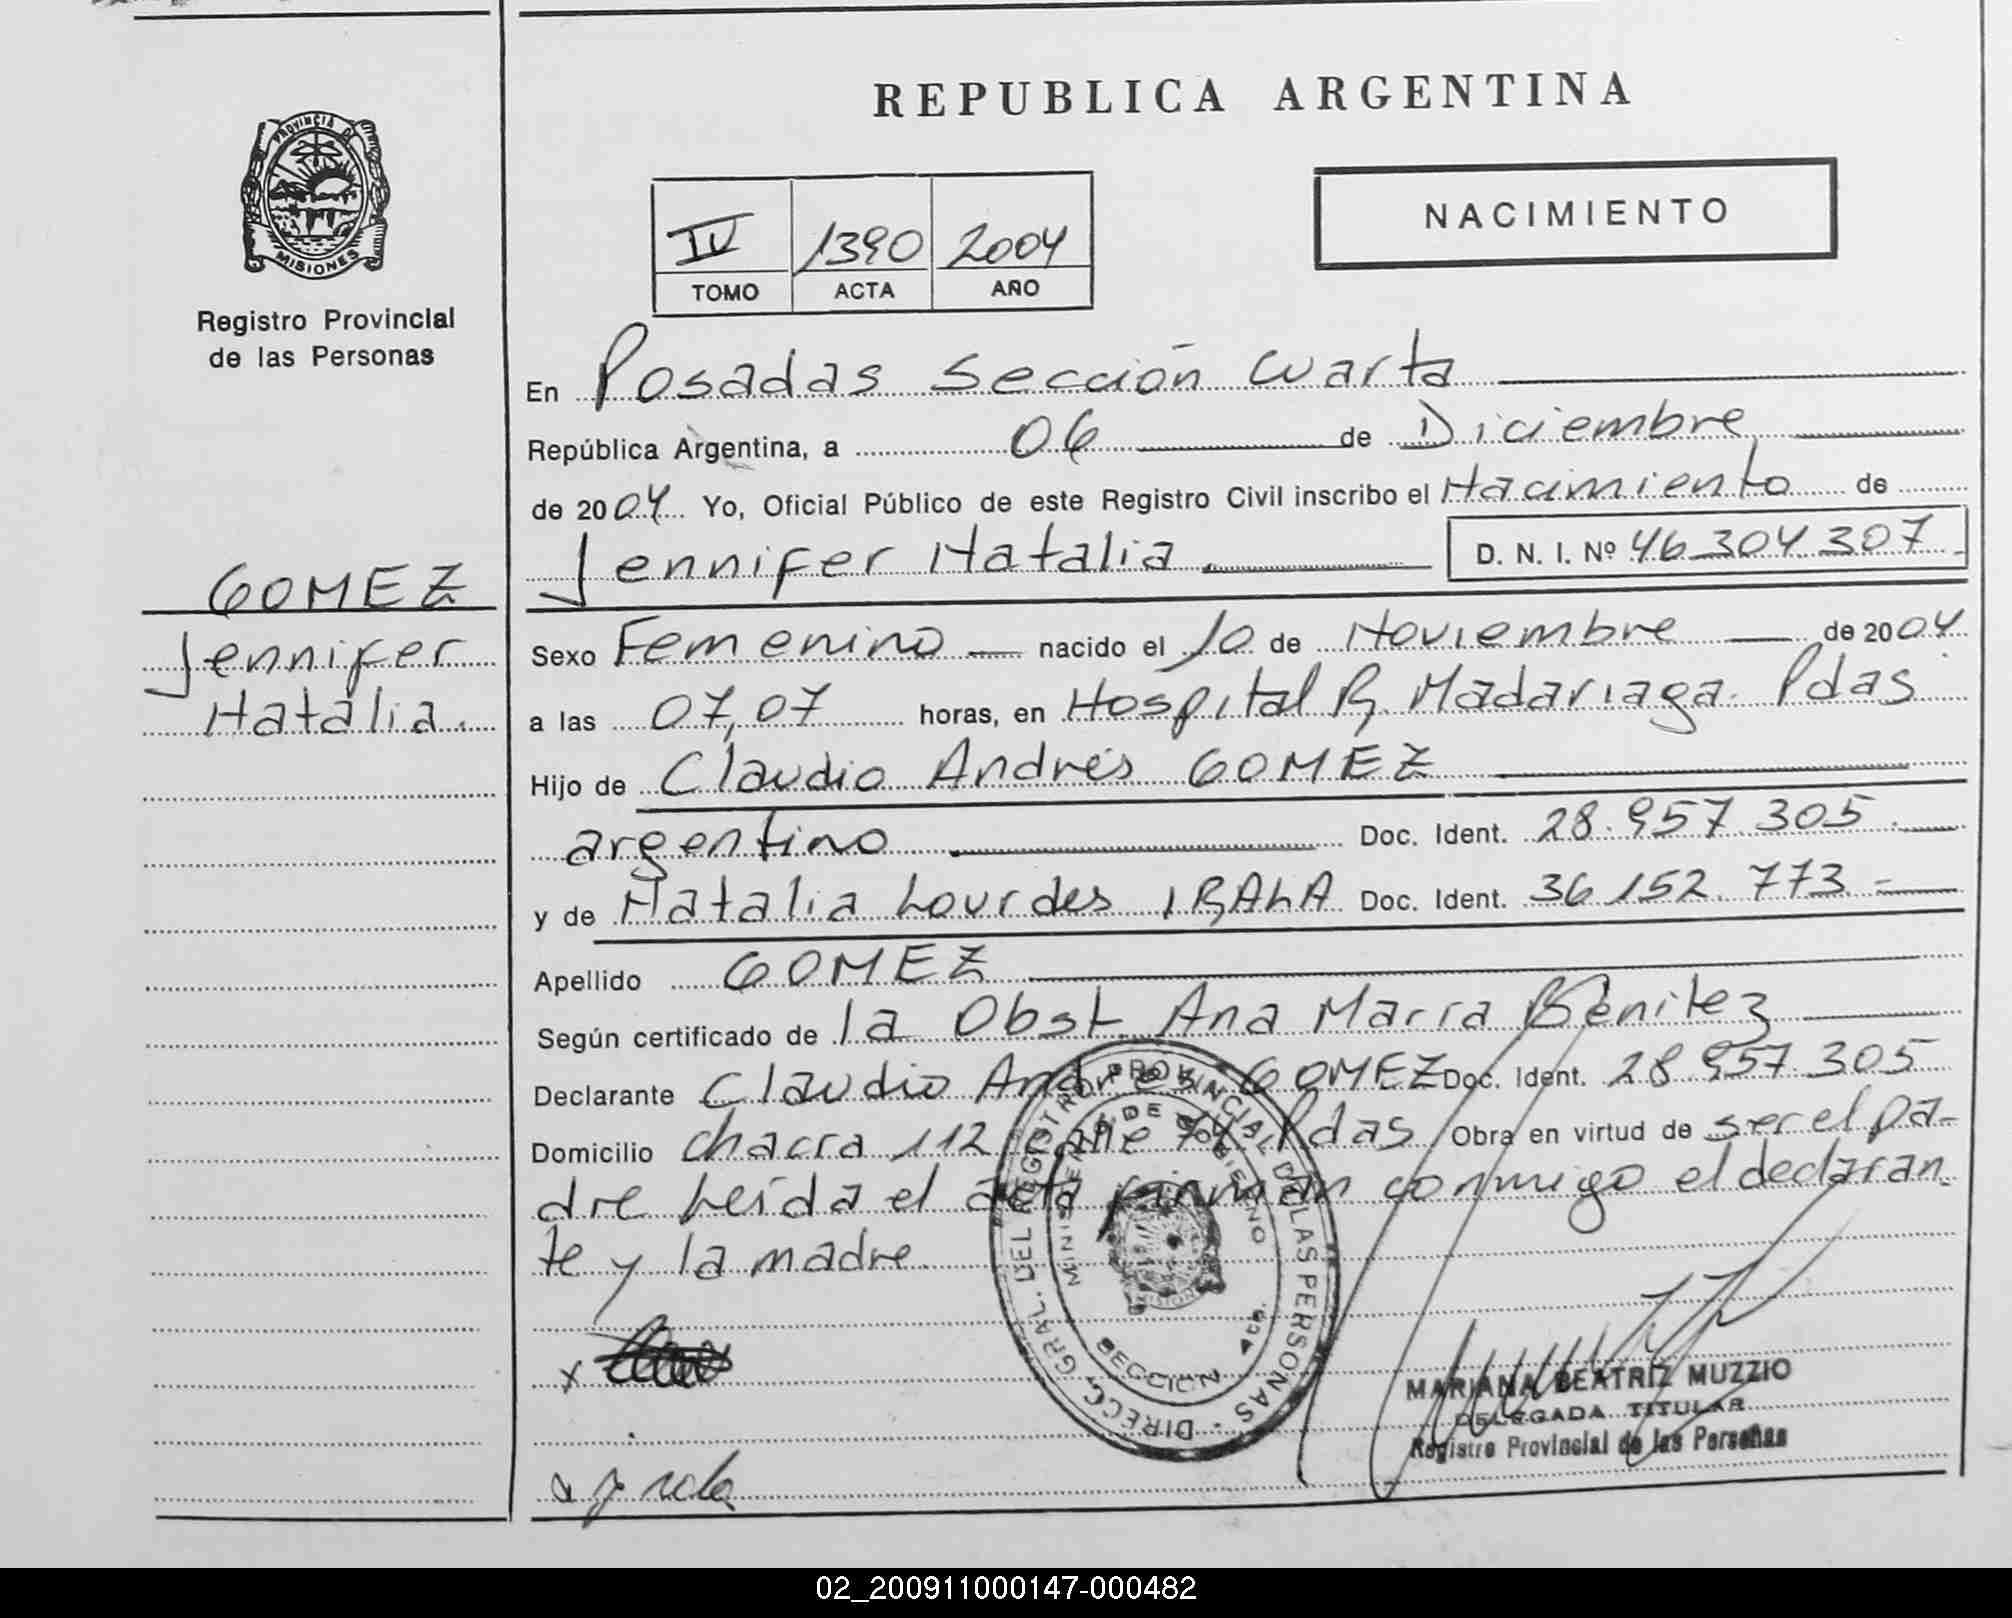 REPUBLICA ARGENTINA
PROVINCIA DE
MISIONES
Registro Provincial
de las Personas
NACIMIENTO
IV 1390 2004
TOMO ACTA AÑO
En Posadas Sección Cuarta
República Argentina, a 06 de Diciembre
de 2004 Yo, Oficial Público de este Registro Civil inscribo el Nacimiento de
Jennifer Natalia D. N. I. Nº 46 304 307
GOMEZ
Jennifer
Natalia.
Sexo Femenino nacido el 10 de Noviembre de 2004
a las 07,07 horas, en Hospital R. Madariaga. Pdas
Hijo de Claudio Andrés GOMEZ
argentino Doc. Ident. 28.957.305.
y de Natalia Lourdes IRALA Doc. Ident. 36.152.773.-
Apellido GOMEZ
Según certificado de la Obst. Ana María Benitez
Declarante Claudio Andrés GOMEZ Doc. Ident. 28.957.305
Domicilio chacra 112 calle 74 Pdas Obra en virtud de ser el pa-
dre Leída el acta firman conmigo el declaran-
te y la madre.
DIRECC. GRAL. DEL REGISTRO PROVINCIAL DE LAS PERSONAS
MINISTERIO DE GOBIERNO
SECCION 4ta.
x
MARIANA BEATRIZ MUZZIO
DELEGADA TITULAR
Registro Provincial de las Personas
02_200911000147-000482